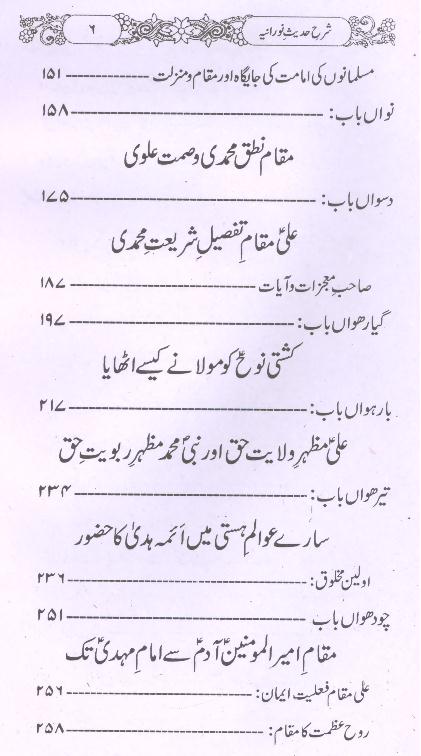 شرح حدیثِ نورانیہ ۶
مسلمانوں کی امامت کی جایگاہ اور مقام و منزلت ---------- ۱۵۱
نواں باب: ---------- ۱۵۸
مقامِ نطق محمدی و صمت علوی
دسواں باب: ---------- ۱۷۵
علیؑ مقامِ تفصیلِ شریعتِ محمدی
صاحبِ معجزات و آیات ---------- ۱۸۷
گیارھواں باب: ---------- ۱۹۷
کشتی نوحؑ کو مولا نے کیسے اٹھایا
بارہواں باب: ---------- ۲۱۷
علیؑ مظہرِ ولایت حق اور نبیؐ محمد مظہرِ ربوبیتِ حق
تیرھواں باب: ---------- ۲۳۴
سارے عوالمِ ہستی میں أئمہ ہدیٰ کا حضور
اولین مخلوق: ---------- ۲۳۶
چودھواں باب ---------- ۲۵۱
مقامِ امیر المومنینؑ آدمؑ سے امامِ مہدیؑ تک
علی مقام فعلیت ایمان: ---------- ۲۵۶
روح عظمت کا مقام: ---------- ۲۵۸